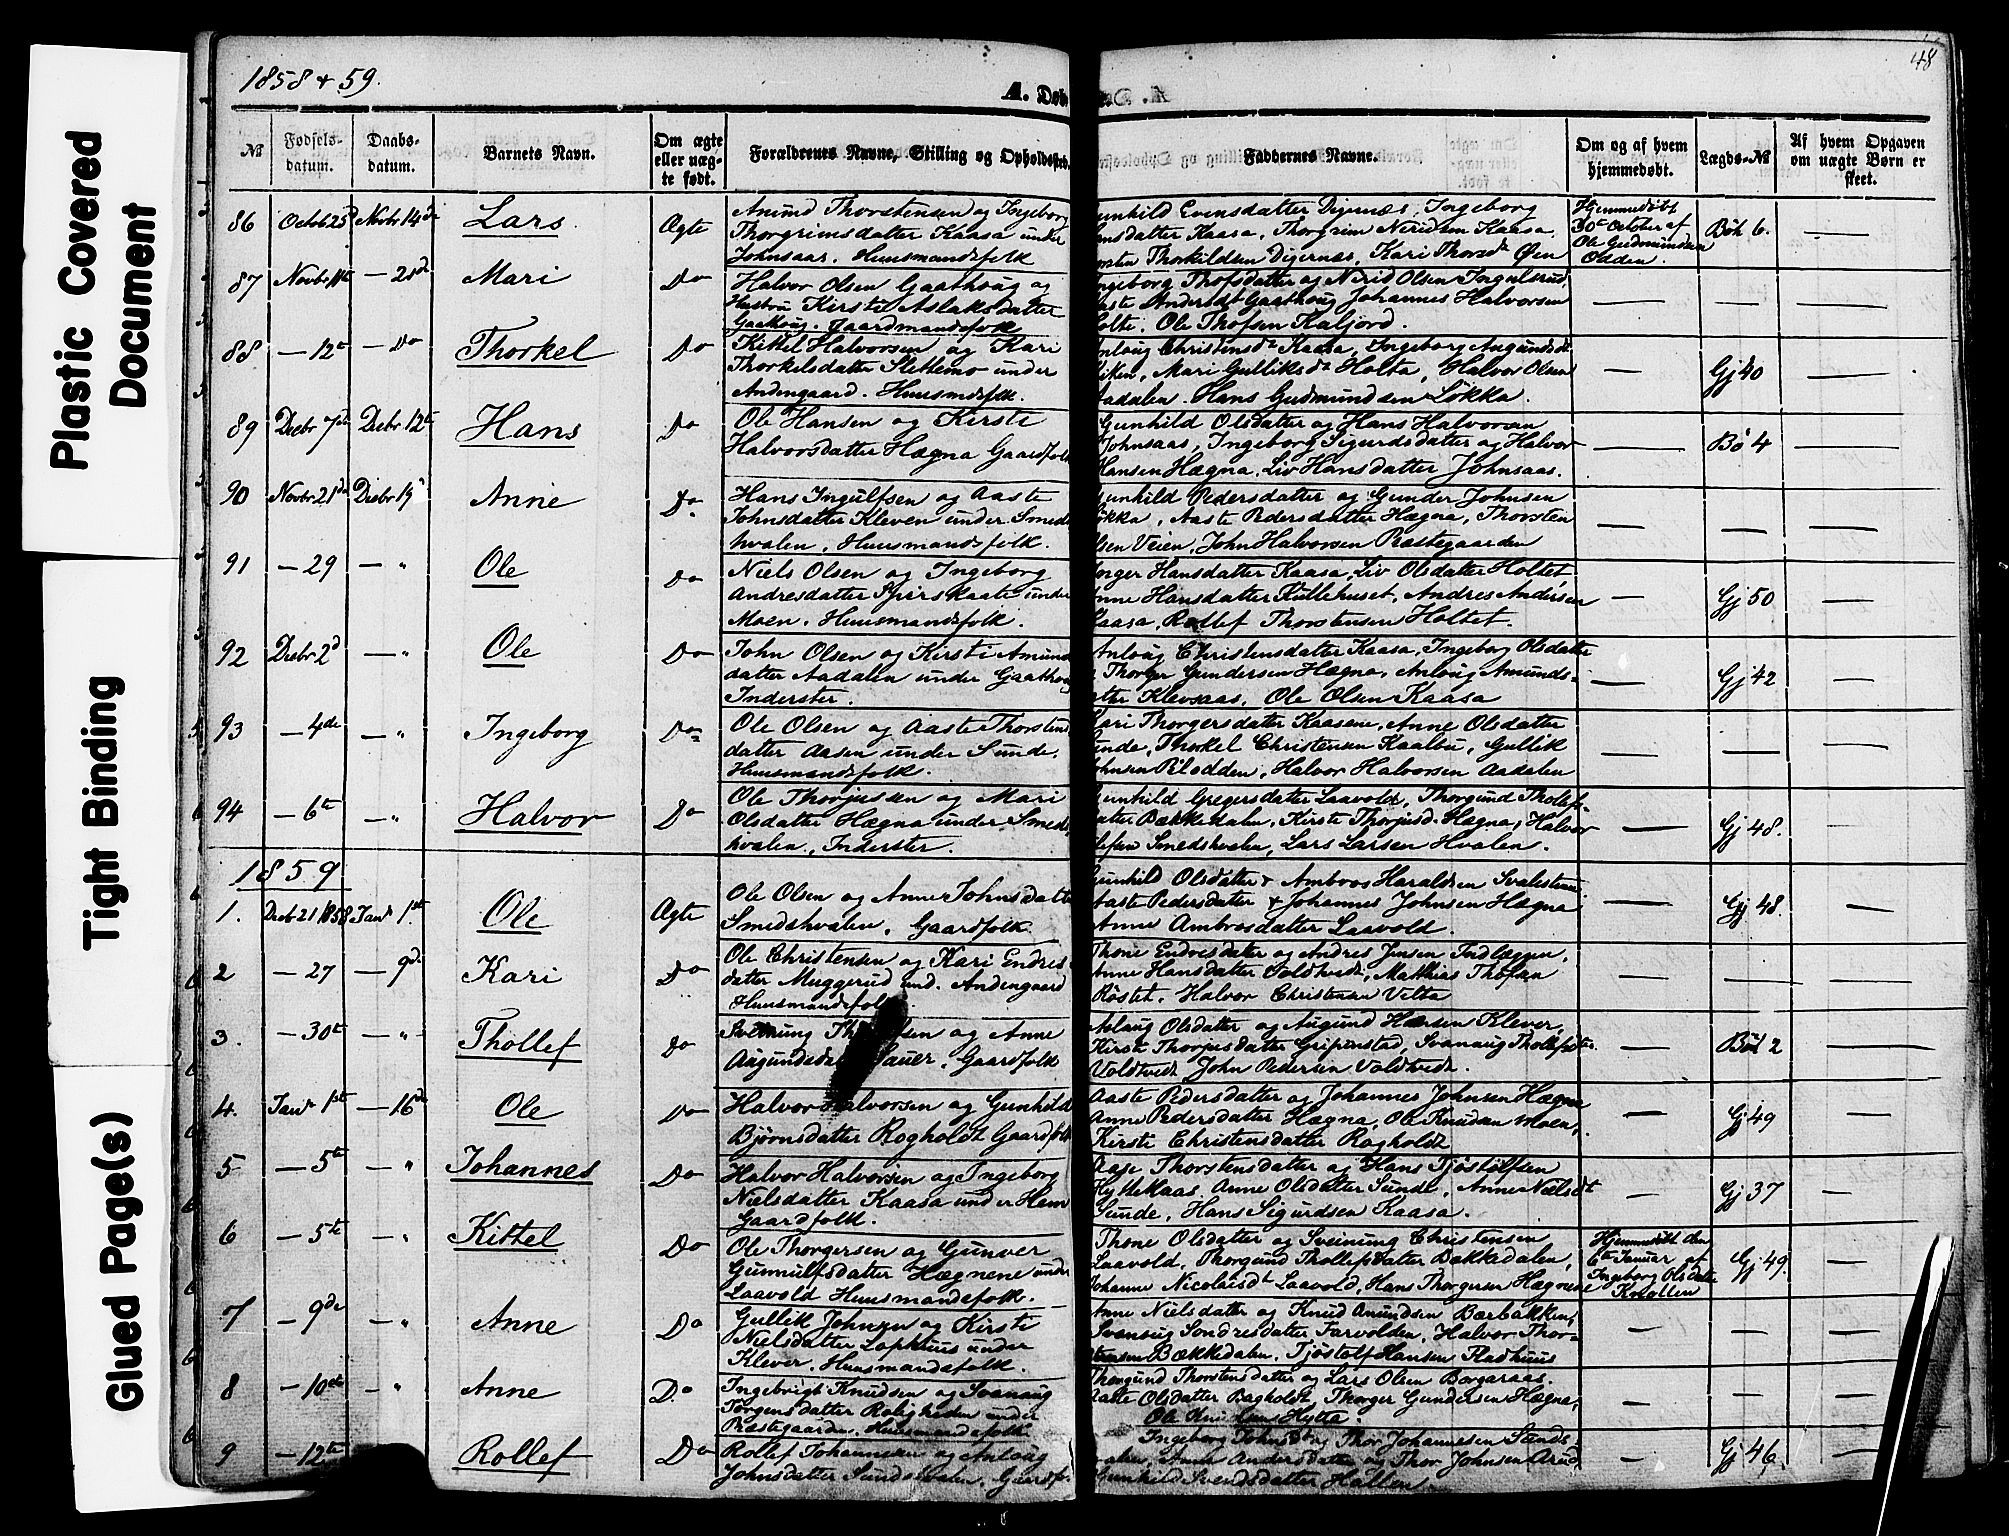 Plastic Covered
Document
Tight Binding
Glued Page(s)
1858 & 59.
A. Døb
48
№
Fødselsdatum.
Daabsdatum.
Barnets Navn.
Om ægte eller uægte født.
Forældrenes Navne, Stilling og Opholdssted.
Faddernes Navne.
Om og af hvem hjemmedøbt.
Lægds-№
Af hvem Opgaven om uægte Børn er skeet.
86 Octob 25d Novbr 14de Lars Ægte
Amund Thorstensen og Ingeborg
Thorgrimsdatter Kaasa under
Johnsaas. Huusmandsfolk
Gunhild Evensdatter Digernæs, Ingeborg
Hansdatter Kaasa, Thorgrim Neridsen Kaasa
Thorsten Thorkildsen Digernæs, Kari Thorsd Øen
Hjemmedøbt
30te October af
Ole Gudmundsen
Oldden.
Bøh 6.
87 Novbr 11te — 21d Mari Do
Halvor Olsen Gaathoug og
Hustru Kirsti Aslaksdatter
Gaathoug. Gaardmandsfolk
Ingeborg Thofsdatter og Nerid Olsen Ingulsrud
Aaste Andersdt Gaathoug Johannes Halvorsen
Holte. Ole Thofsen Kaljord.
— — —
88 — 12te — Do Thorkel Do
Kittel Halvorsen og Kari
Thorkelsdatter Slettemo under
Andengaard. Huusmdsfolk.
Anloug Christensdt Kaasa, Ingeborg Augundsdt
Viken, Mari Gulliksdt Holta, Halvor Olsen
Aadalen. Hans Gudmundsen Løkka.
— Gj 40 —
89 Decbr 7de Decbr 12te Hans Do
Ole Hansen og Kirsti
Halvorsdatter Hægna Gaardfolk
Gunhild Olsdatter og Hans Halvorsen
Johnsaas, Ingeborg Sigurdsdatter og Halvor
Hansen Hægna, Liv Hansdatter Johnsaas.
— Bø 4 —
90 Novbr 21de Decbr 19 Anne Do.
Hans Ingulfsen og Aaste
Johnsdatter Kleven under Smeds
hvalen. Huusmandsfolk.
Gunhild Pedersdatter og Gunder Johnsen
Løkka, Aaste Pedersdatter Hægna, Thorsten
Olsen Veien, John Halvorsen Præstegaarden
— — —
91 — 29 — " Ole Do
Niels Olsen og Ingeborg
Andresdatter Spirskaate under
Moen. Huusmandsfolk.
Torger Hansdatter Kaasa, Liv Olsdatter Holtet
Anne Hansdatter Kullehuset, Andres Andersen
Kaasa, Rollef Thorstensen Holtet.
— Gj 50 —
92 Decbr 2d — " Ole Do
John Olsen og Kirsti Amunds
datter Aadalen under Gaathoug
Inderster.
Anloug Christensdatter Kaasa, Ingeborg Olsdatter
og Thorger Gundersen Hægna, Anloug Amunds-
datter Klevsaas, Ole Olsen Kaasa
— Gj 42 —
93 — 4de — " Ingeborg Do
Ole Olsen og Aaste Thorstens
datter Aasen under Sunde.
Huusmandsfolk.
Kari Thorgersdatter Kaasene, Anne Olsdatter
Sunde, Thorkel Christensen Kaasen, Gullik
Johnsen Plodden, Halvor Halvorsen Aadalen
— — —
94 — 6te — " Halvor Do
Ole Thorjussen og Mari
Olsdatter Hægna under Smeds
hvalen, Inderster.
Gunhild Gregersdatter Laavold, Thorgund Thollef-
datter Bækkedalen, Kirste Thorjusd. Hægna, Halvor
Olefsen Smedshvalen, Lars Larsen Hvalen.
— Gj 48. —
1859
1. Decb 21 1858 Janr 1ste Ole Ægte
Ole Olsen og Anne Johnsdatte
Smedshvalen, Gaardfolk
Gunhild Olsdatter & Ambros Haraldsen Svalesteen
Aaste Pedersdatter & Johannes Johnsen Hægna
Anne Ambrosdatter Laavold.
— Gj 48. —
2 — 27 — 9de Kari Do
Ole Christensen og Kari Endres
datter Muggerud und. Andengaard
Huusmandsfolk.
Thone Endresdatter og Andres Jensen Indlæggen,
Anne Hansdatter Voldtvedt, Matthias Thofsen
Røstet. Halvor Christensen Velta
— — —
3. — 30te — " Thollef Do
Sveinung Thollefsen og Anne
Augundsdatter Sauer. Gaardfolk
Aslaug Olsdatter og Augund Hansen Klever,
Kirste Thorjusdatter Gripenstad, Svanaug Thollefsdtr
Voldtvedt John Pedersen Voldtvedt.
— Bøh 2 —
4. Janr 1ste — 16de Ole Do
Halvor Halvorsen og Gunhild
Bjørnsdatter Rogholdt Gaardfolk
Aaste Pedersdatter og Johannes Johnsen Hægna
Anne Pedersdatter Hægna, Ole Knudsen Moen,
Kirste Christensdatter Rogholdt
— Gj 49 —
5 — 5te — " Johannes Do
Halvor Halvorsen og Ingeborg
Nielsdatter Kaasa under Hem
Gaardfolk.
Aase Thorstensdatter og Hans Tjøstolfsen
Hyttekaas Anne Olsdatter Sunde, Anne Nielsdt
Sunde, Hans Sigurdsen Kaasa.
— Gj 37 —
6 — 5te — " Kittel Do
Ole Thorgersen og Gunver
Gunnulfsdatter Hægnene under
Laavold Huusmandsfolk.
Thone Olsdatter og Sveinung Christensen
Laavold, Thorgund Thollefsdatter Bækkedalen,
Johanne Nicolaisdt Laavold, Hans Thorgersen Hægnene
Hjemmedøbt den
6te Januar af
Ingeborg Olsdatter
Knollen
Gj 49. —
7 — 9de — " Anne Do
Gullik Johnsen og Kirsti
Nielsdatter Lophuus under
Klever. Huusmandsfolk.
Anne Nielsdatter og Knud Amundsen Bærbakken,
Svanaug Sondresdatter Farvolden, Halvor Thor-
stensen Bækkedalen, Tjøstolf Hansen Fladhuus
— — —
8 — 10de — " Anne Do
Ingebrigt Knudsen og Svanaug
Jørgensdatter Roligheden under
Præstegaarden. Huusmandsfolk
Thorgund Thorstensdatter og Lars Olsen Borgaraas.
Aaste Olsdatter Bagholdt Thorger Gundersen Hægna,
Ole Knudsen Hytta.
— — —
9 — 12te Rollef Do
Rollef Johannesen og Anloug
Johnsdatter Sundshvalen. Gaardf.
Ingeborg Johnsdt og Thor Johannesen Sunds
hvalen, Anne Andersdatter og Thor Johnsen Aarud,
Gunhild Svendsdatter Hallen.
— Gj 46, —